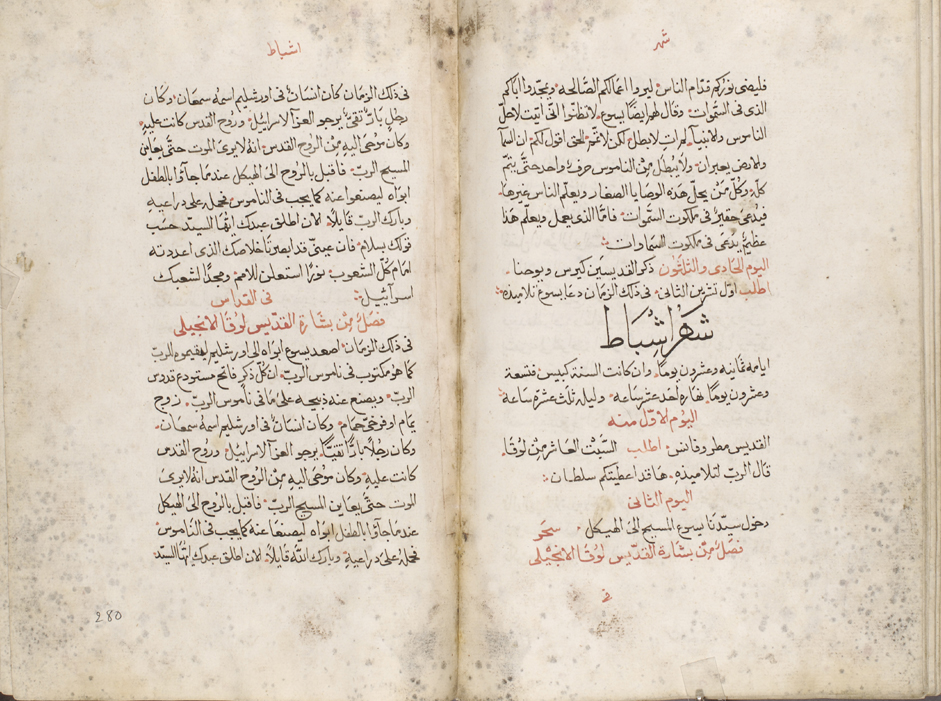 شهر
فليضى نوركم قدّام الناس ليروا اعمالكم الصّالحه ويمجّدوا اباكم
الذى فى السّموات وقال لهم ايضًا يسوع لا تظنّوا انّى اتيت لاحلّ
الناموس والانبيآ لم ات لابطل لكن لاتمّم الحق اقول لكم ان السمآ
والارض يعبران ولا يبطل من الناموس حرف واحد حتّى يتمّ
كلّه وكلّ من يحلّ هذه الوصايا الصغار ويعلّم الناس غيرها
فيدعى حقيرًا فى ملكوت السّموات فامّا الذى يعمل ويعلّم هذا
عظيمٌ يدعى فى ملكوت السماوات
اليوم الحادى والثلثون ذكر القديسين كيرس ويوحنا
اطلب اوّل تشرين الثانى فى ذلك الزمان دعا يسوع تلاميذه
شهر اشباط
ايامه ثمانيه وعشرون يومًا وان كانت السنة كبيس فتسعة
وعشرون يومًا نهاره احد عشر ساعه وليله ثلث عشرة ساعة
اليوم الاوّل منه
القديس مطروفانس اطلب السّبت العاشر من لوقا
قال الربّ لتلاميذه ها قد اعطيتكم سلطان
اليوم الثانى
دخول سيّدنا يسوع المسيح الى الهيكل سَحَر
فصل من بشارة القدّيس لوقا الانجيلى
فى
اشباط
فى ذلك الزمان كان انسانٌ فى اورشليم اسمه سمعان وكان
رجلٍ بارّ تقىّ يرجو العزآ لاسراييل وروح القدس كانت عليه
وكان موحًى اليه من الروح القدس انه لا يرى الموت حتّى يعاين
المسيح الربّ فاقبل بالروح الى الهيكل عندما جآؤا بالطفل
ابواه ليصنعوا عنه كما يجب فى الناموس فحمله على ذراعيه
وبارك الربّ قايلًا الان اطلق عبدك ايّها السيّد حسب
قولك بسلام فان عينىّ قد ابصرتا خلاصك الذى اعددته
امام كلّ الشعوب نورًا استعلن للامم ومجدًا لشعبك
اسرآئيل فى القداس
فصلٌ من بشارة القدّيس لوقا الانجيلى
فى ذلك الزمان اصعد يسوع ابواه الى اورشليم ليقيموه للربّ
كما هو مكتوب فى ناموس الربّ ان كلّ ذكر فاتح مستودع قدوس
الربّ ويصنع عنه ذبيحه على ما فى ناموس الربّ زوج
يمام او فرخى حمام وكان انسانٌ فى اورشليم اسمه سمعان
وكان رجلًا بارًّا تقيّا يرجو العزآ لاسراييل وروح القدس
كانت عليه وكان موحًى اليه من الروح القدس انه لا يرى
الموت حتّى يعاين المسيح الربّ فاقبل بالروح الى الهيكل
عندما جاؤا بالطفل ابواه ليصنعا عنه كما يجب فى الناموس
فحمله على ذراعيه وبارك اللّه قايلًا الان اطلق عبدك ايّها السيّد
280